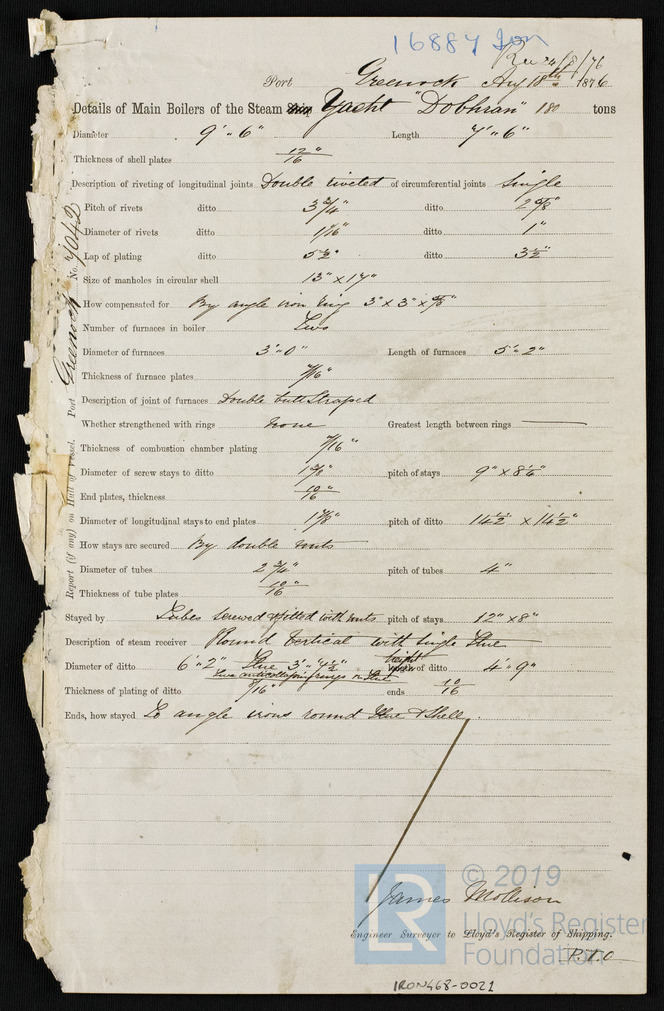 16887 Jon
Rec 24/8/76
Port Greenock Aug 18th 1876
Details of Main Boilers of the Steam Ship Yacht "Dobhran" 180 tons
Diameter 9'" 6" Length 7'" 6"
Thickness of shell plates 12/16"
Description of riveting of longitudinal joints Double riveted of circumferential joints Single
Pitch of rivets ditto 3 3/4" ditto 2 3/8"
Diameter of rivets ditto 1 1/16" ditto 1"
Lap of plating ditto 5 1/2" ditto 3 1/2"
Size of manholes in circular shell 13" x 17"
How compensated for By angle iron ring 3" x 3" x 5/8"
Number of furnaces in boiler Two
Diameter of furnaces 3'" 0" Length of furnaces 5'" 2"
Thickness of furnace plates 7/16"
Description of joint of furnaces Double butt Straped
Whether strengthened with rings None Greatest length between rings
Thickness of combustion chamber plating 7/16"
Diameter of screw stays to ditto 1 3/8" pitch of stays 9" x 8 1/2"
End plates, thickness 10/16"
Diameter of longitudinal stays to end plates 1 7/8" pitch of ditto 14 1/2 x 14 1/2"
How stays are secured By double nuts
Diameter of tubes 2 3/4" pitch of tubes 4"
Thickness of tube plates 10/16"
Stayed by Tubes screwed & fitted with nuts pitch of stays 12" x 8"
Description of steam receiver Round Vertical with Single Flue
Diameter of ditto 6'" 2" Flue 3'" 4 1/2" height of ditto 4'" 9"
Two anti collapsing rings on Flue
Thickness of plating of ditto 7/16" ends 10/16
Ends, how stayed To angle irons round Flue & Shell.
James Mollison
Engineer Surveyor to Lloyd's Register of Shipping.
P.T.O
IRON468-0021
Report (if any) on Hull of Vessel. Port Greenock No. 4042
© 2019
Lloyd's Register
Foundation
LR